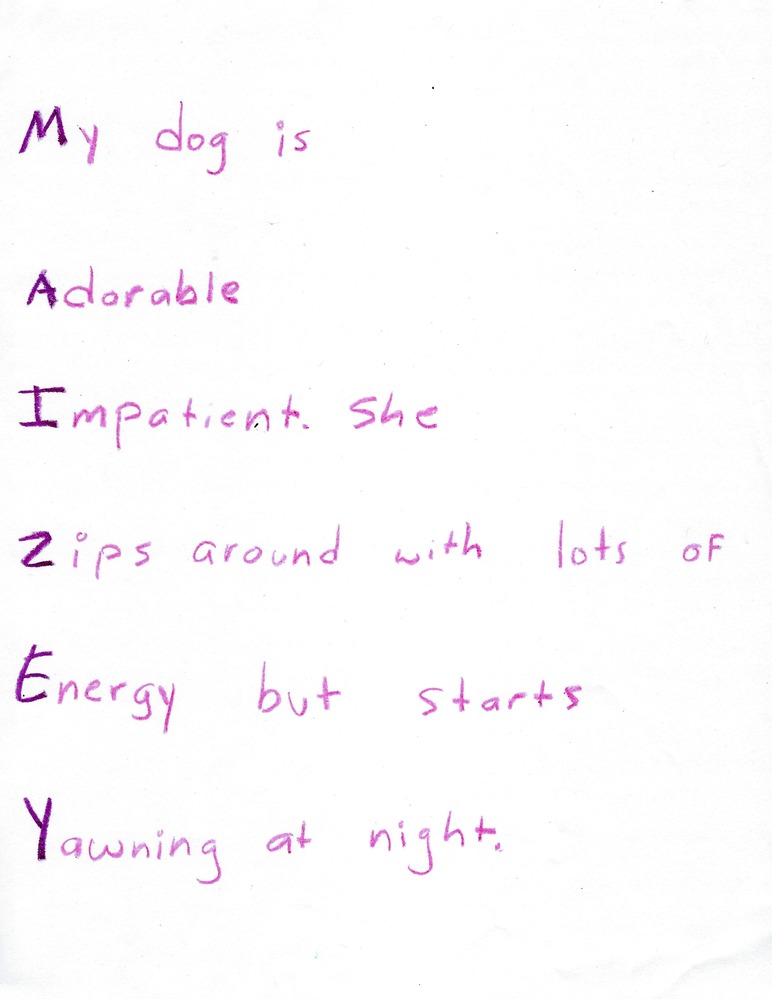 My dog is
Adorable
Impatient. She
Zips around with lots of
Energy but starts
Yawning at night.